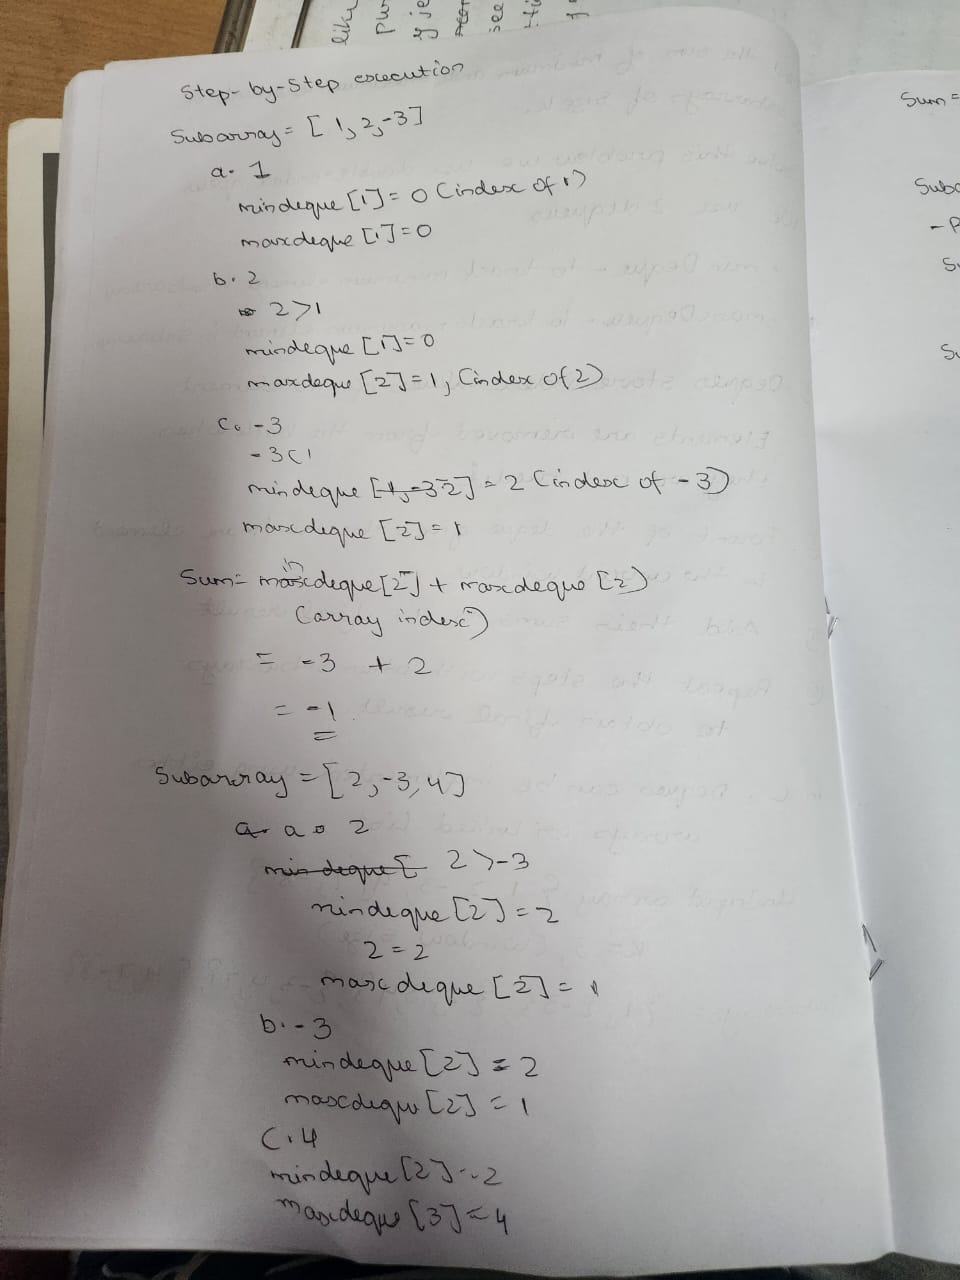 like
see
Step-by-Step execution
Subarray = [1,2,-3]
a. 1
mindeque [1] = 0 (index of 1)
maxdeque [1] = 0
b. 2
2>1
mindeque [1] = 0
maxdeque [2] = 1, (index of 2)
c. -3
-3<1
mindeque [2] = 2 (index of -3)
maxdeque [2] = 1
Sum = mindeque[2] + maxdeque [2]
(array index)
= -3 + 2
= -1
Subarray = [2,-3,4]
a. 2
2>-3
mindeque [2] = 2
2 = 2
maxdeque [2] = 1
b. -3
mindeque [2] = 2
maxdeque [2] = 1
C. 4
mindeque [2] = 2
maxdeque [3] = 4
Sum =